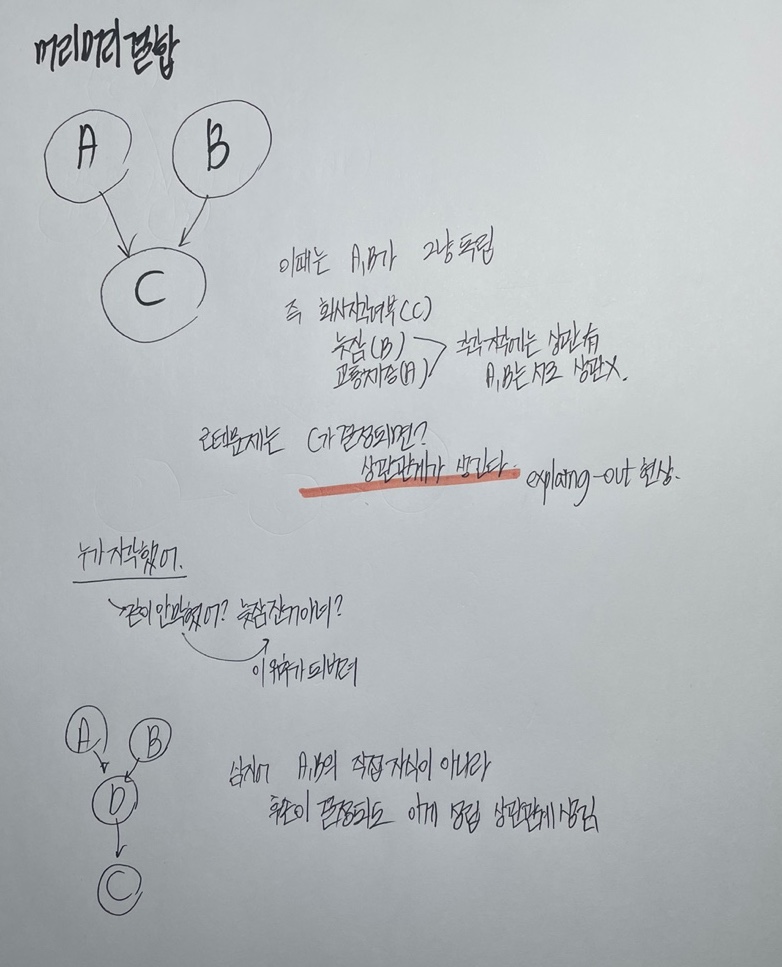 머리머리결합
A B
C
이때는 A,B가 그냥 독립
즉 회사지각여부(C)
늦잠(B)
교통체증(A)
각각 지각에는 상관有
A,B는 서로 상관X.
근데문제는 C가 결정되면?
상관관계가 생긴다.
explaing-out 현상.
누가지각했어.
길이 안막혔어? 늦잠잔거아녀?
이 되버려
A B
D
C
심지어 A,B의 직접 자식이 아니라
후손이 결정되도 이게 성립 상관관계생김